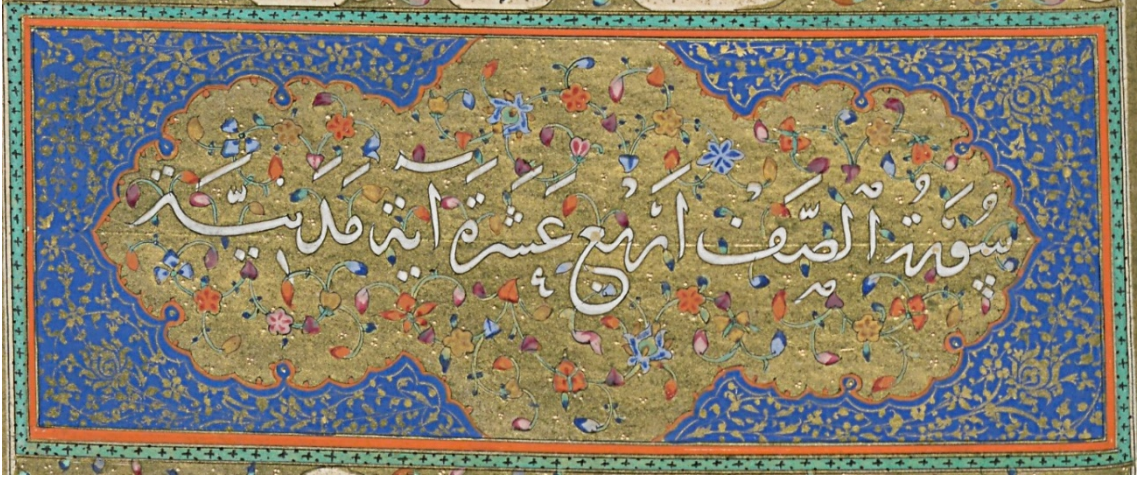 سُورَةُ ٱلصَّف اَرْبَع عَشَرَةَ آیَة مَدَنِیَّة